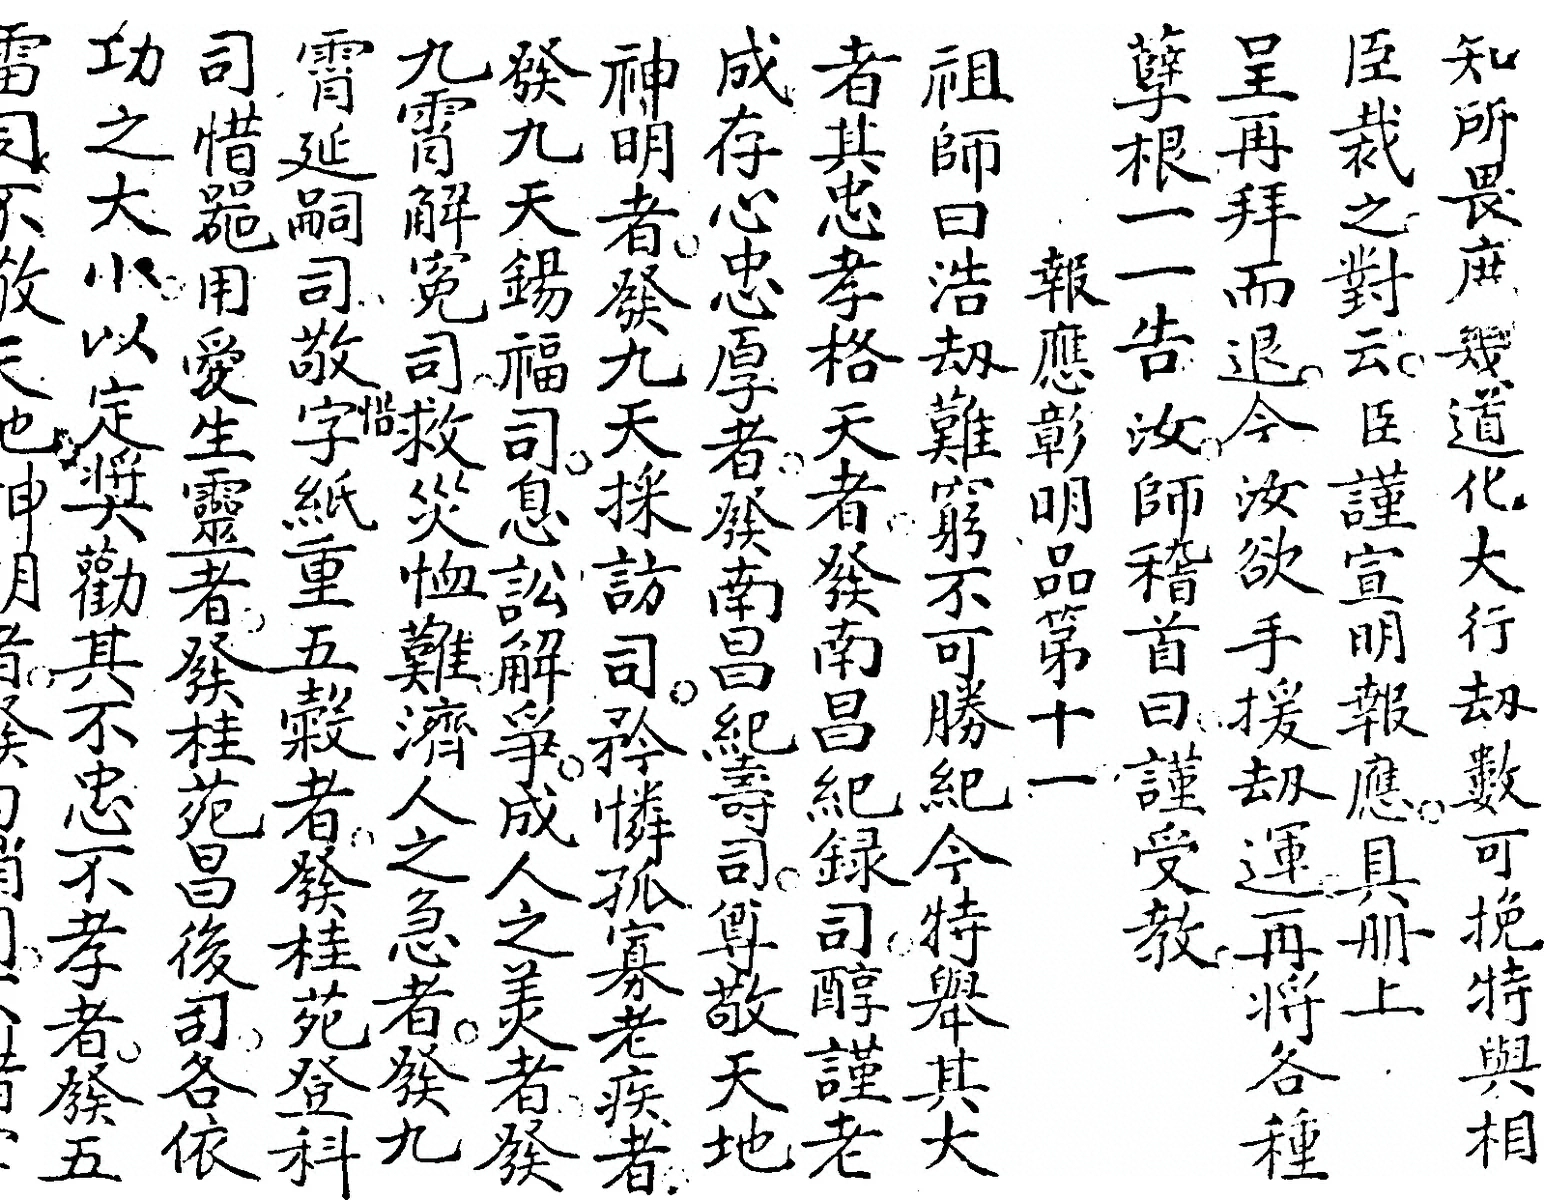 知所畏庶幾道化大行刼數可挽特與相
臣裁之對云臣謹宣明報應具册上
呈再拜而退今汝欲手援刼運再将各種
孽根一一告汝師稽首曰謹受教
報應彰明品第十一
祖師曰浩刼難窮不可勝紀今特舉其大
者其忠孝格天者發南昌紀録司醇謹老
成存心忠厚者發南昌紀壽司尊敬天地
神明者發九天採訪司矜憐孤寡老疾者
發九天錫福司息訟解爭成人之美者發
九霄解冤司救災恤難濟人之急者發九
霄延嗣司敬惜字紙重五穀者發桂苑登科
司惜噐用愛生靈者發桂苑昌後司各依
功之大小以定奬勸其不忠不孝者發五
雷司不敬天地神明者發